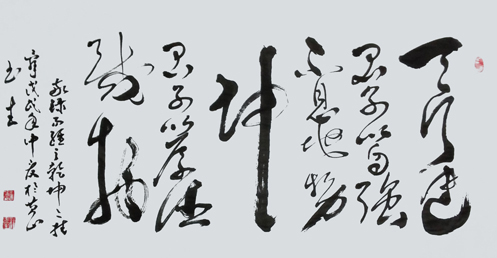 天行健
君子以自强
不息地势
坤
君子以厚德
载物
录易经之乾坤
戊戌年中夏于黄山